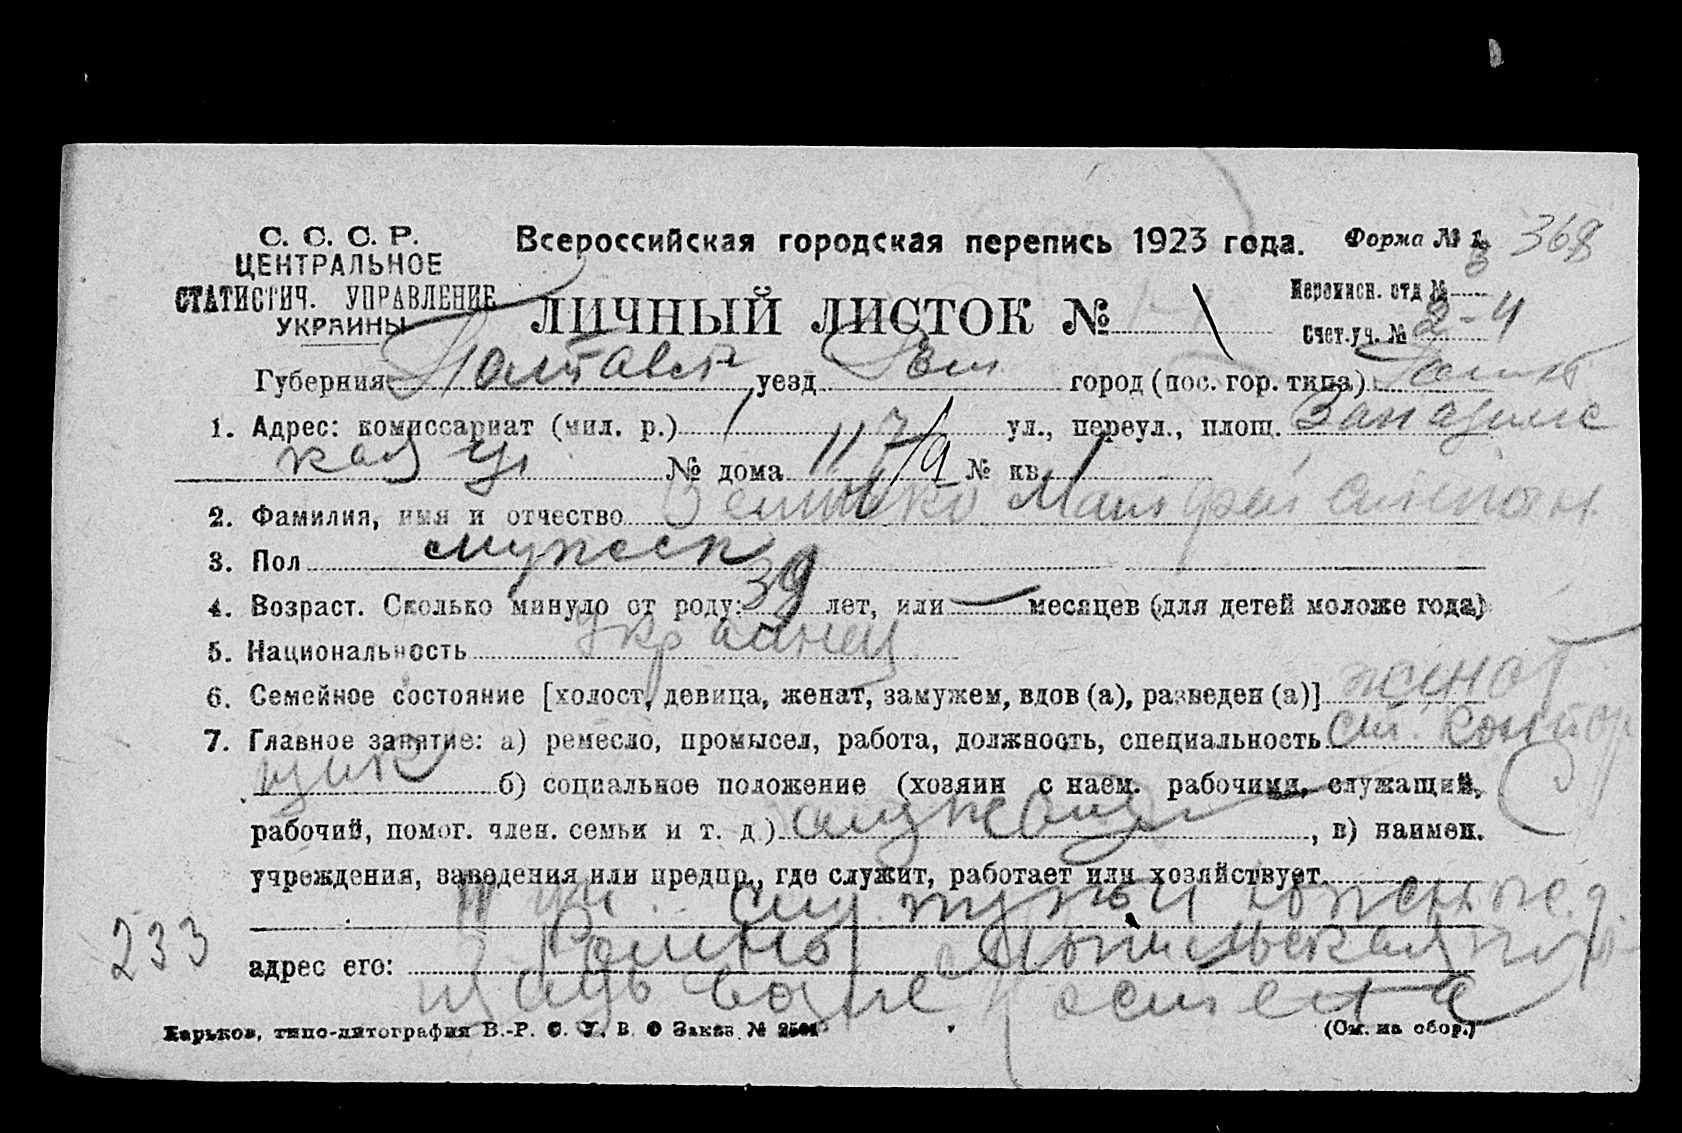 С. С. С. Р.
ЦЕНТРАЛЬНОЕ
СТАТИСТИЧ. УПРАВЛЕНИЕ
УКРАИНЫ
Всероссийская городская перепись 1923 года.
Форма № 1 368
3
ЛИЧНЫЙ ЛИСТОК №
Переписн. отд №
Счет. уч. № 2-4
Губерния Полтавск уезд Ром город (пос. гор. типа)
1. Адрес: комиссариат (мил. р.) 1 ул., переул., площ. Западинс
кая ул № дома 117/9 № кв. 1
2. Фамилия, имя и отчество
3. Пол мужск
4. Возраст. Сколько минуло от роду: 39 лет, или — месяцев (для детей моложе года)
5. Национальность украинец
6. Семейное состояние [холост, девица, женат, замужем, вдов (а), разведен (а)] женат
7. Главное занятие: а) ремесло, промысел, работа, должность, специальность ст. контор
щик б) социальное положение (хозяин с наем. рабочими, служащий,
рабочий, помог. член. семьи и т. д.) служащий, в) наимен.
учреждения, заведения или предпр., где служит, работает или хозяйствует
служ
233
адрес его: Ромны
Харьков, типо-литография В.-Р. С. У. В. О Заказ № 2501
(См. на обор.)